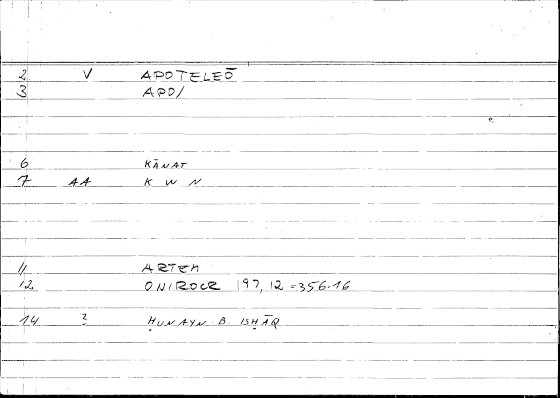 2 V APOTELEŌ
3 APO/
6 KĀNAT
7 AA K W N
11 ARTEM
12 ONIROCR 197,12=356.16
14 ? ḤUNAYN B. ISḤĀQ